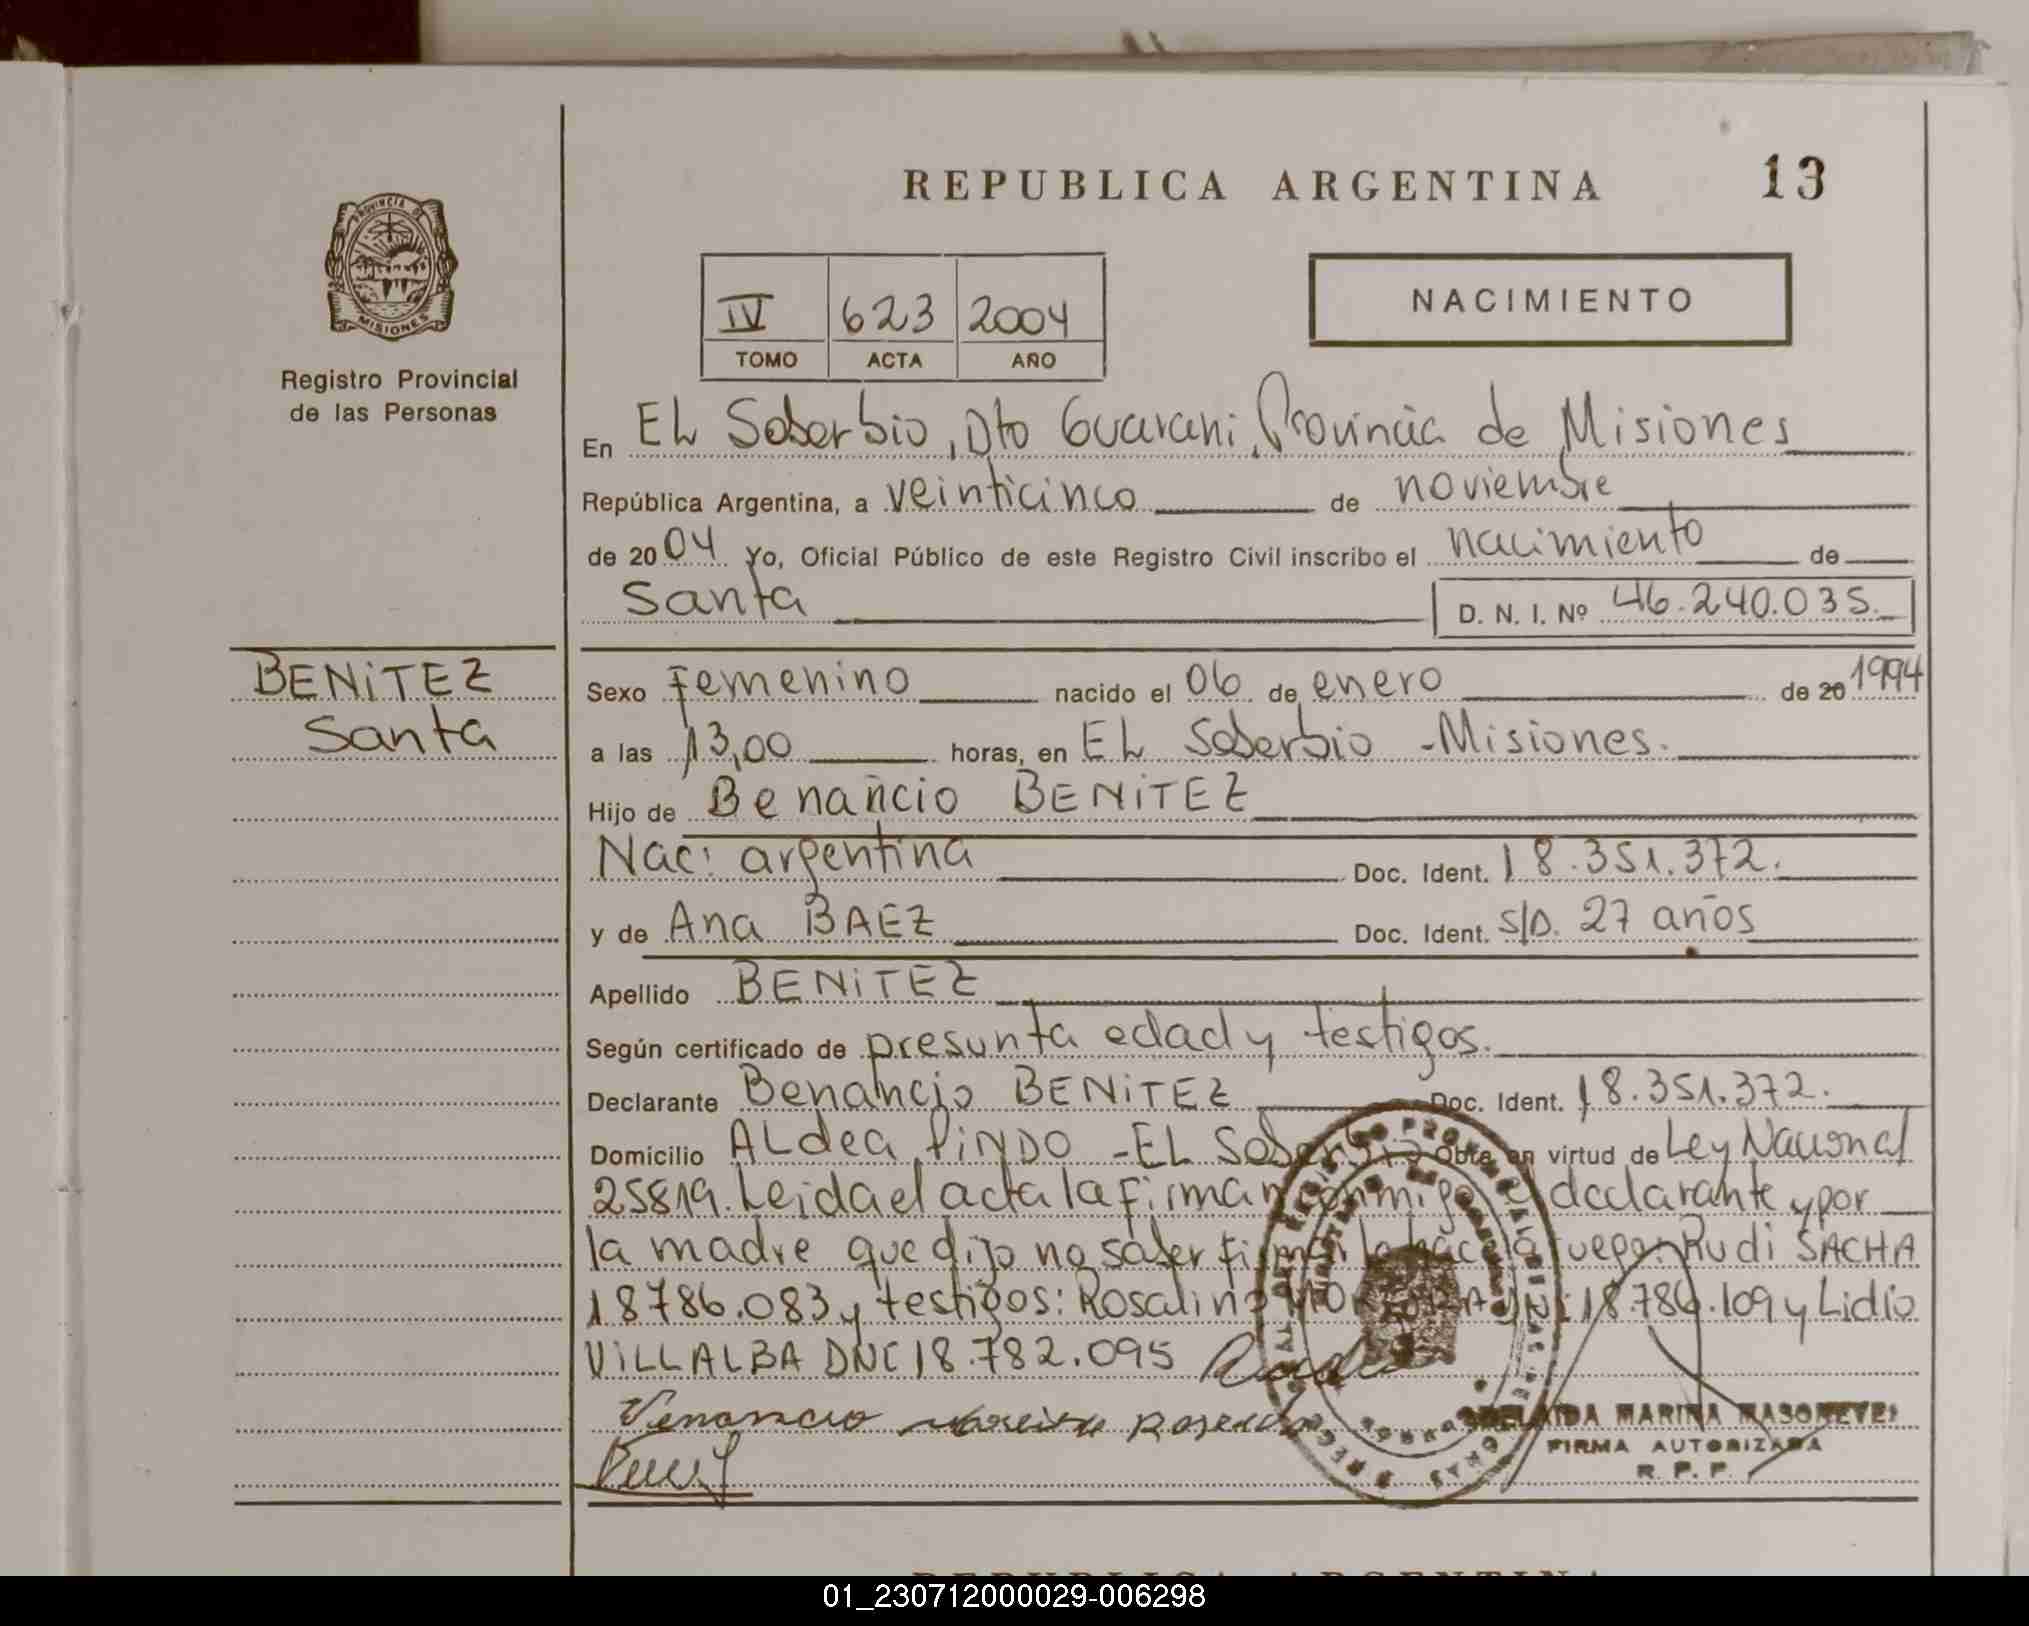 REPUBLICA ARGENTINA 13
PROVINCIA DE
MISIONES
Registro Provincial
de las Personas
IV 623 2004
TOMO ACTA AÑO
NACIMIENTO
En EL Soberbio, Dto Guarani, Provincia de Misiones
República Argentina, a veinticinco de noviembre
de 2004 Yo, Oficial Público de este Registro Civil inscribo el nacimiento de
Santa D. N. I. Nº 46.240.035.
BENITEZ
Santa
Sexo Femenino nacido el 06 de enero de 20 1994
a las 13,00 horas, en EL Soberbio - Misiones.
Hijo de Benancio BENITEZ
Nac: argentina Doc. Ident. 18.351.372.
y de Ana BAEZ Doc. Ident. S/D. 27 años
Apellido BENITEZ
Según certificado de presunta edad y testigos.
Declarante Benancio BENITEZ Doc. Ident. 18.351.372.
Domicilio ALdea PINDO - EL Soberbio Obra en virtud de Ley Nacional
25819. Leida el acta la firman conmigo el declarante y por
la madre que dijo no saber firmar lo hace a ruego: Rudi SACHA
18786.083 y testigos: Rosalino DNI: 18.786.109 y Lidio
VILLALBA DNI 18.782.095
Venancio
MARINA
FIRMA AUTORIZADA
R. P. P.
REPUBLICA ARGENTINA
01_230712000029-006298